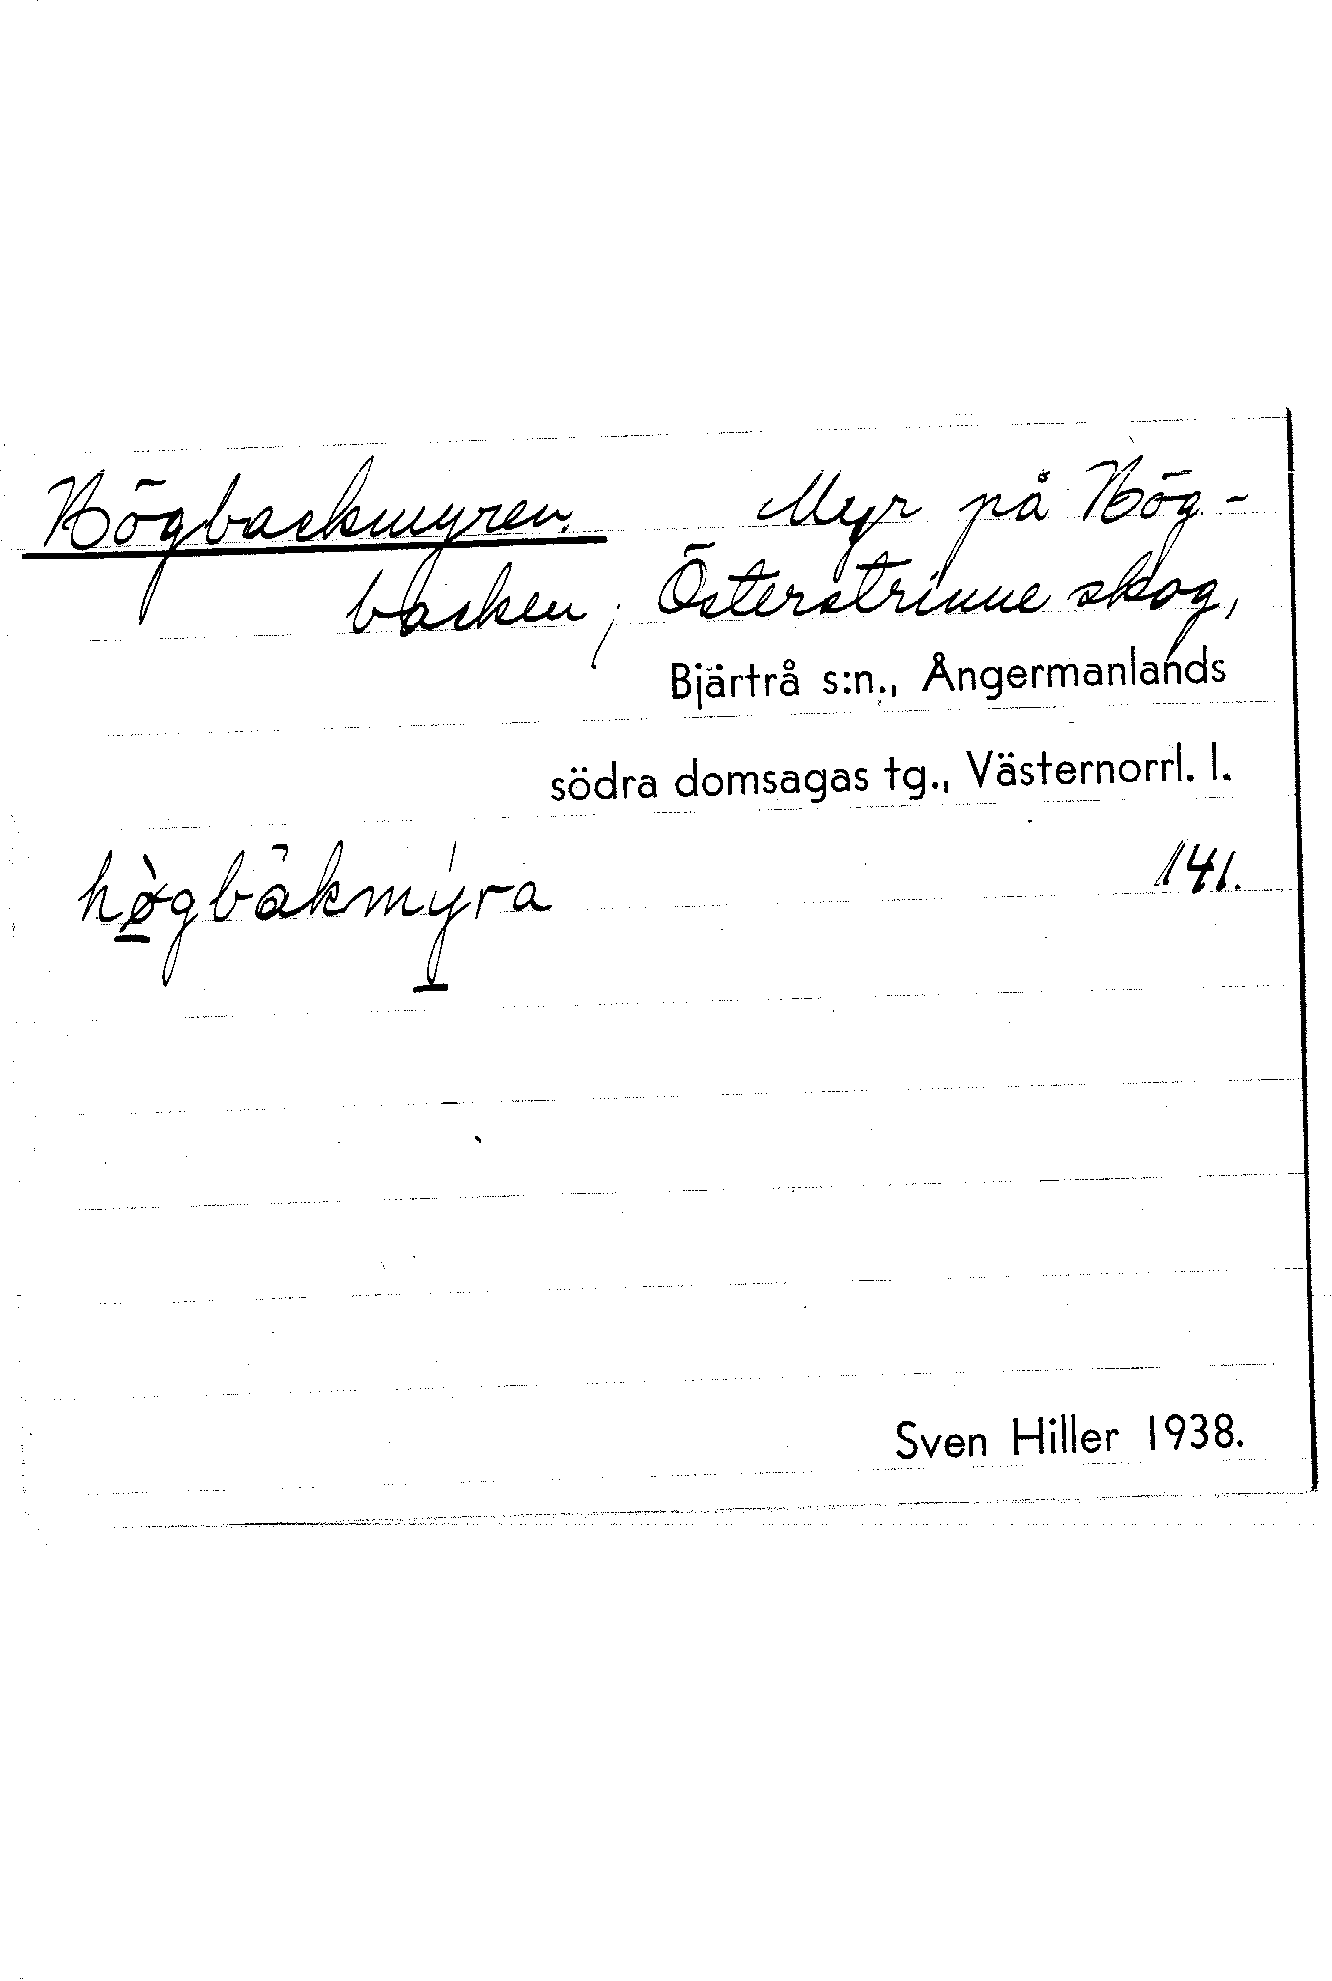 Högbackmyren. Myr på Hög-
backen, Österstrinne skog,
Bjärtrå s:n., Ångermanlands
södra domsagas tg., Västernorrl. l.
hø̀gbăkmýra 141.
Sven Hiller 1938.